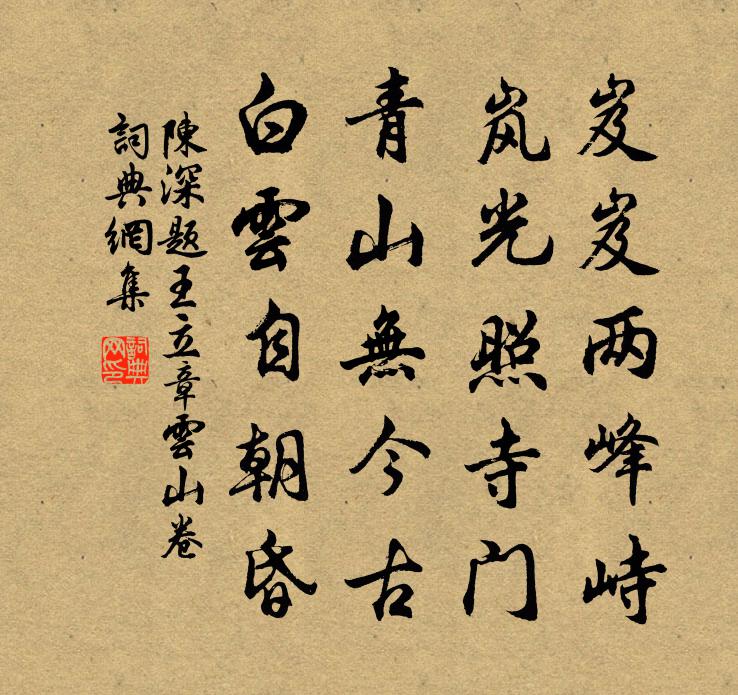 岌岌两峰峙
岚光照寺门
青山無今古
白雲自朝昏
陳深题王立章雲山卷
詞典網集
詞典网印